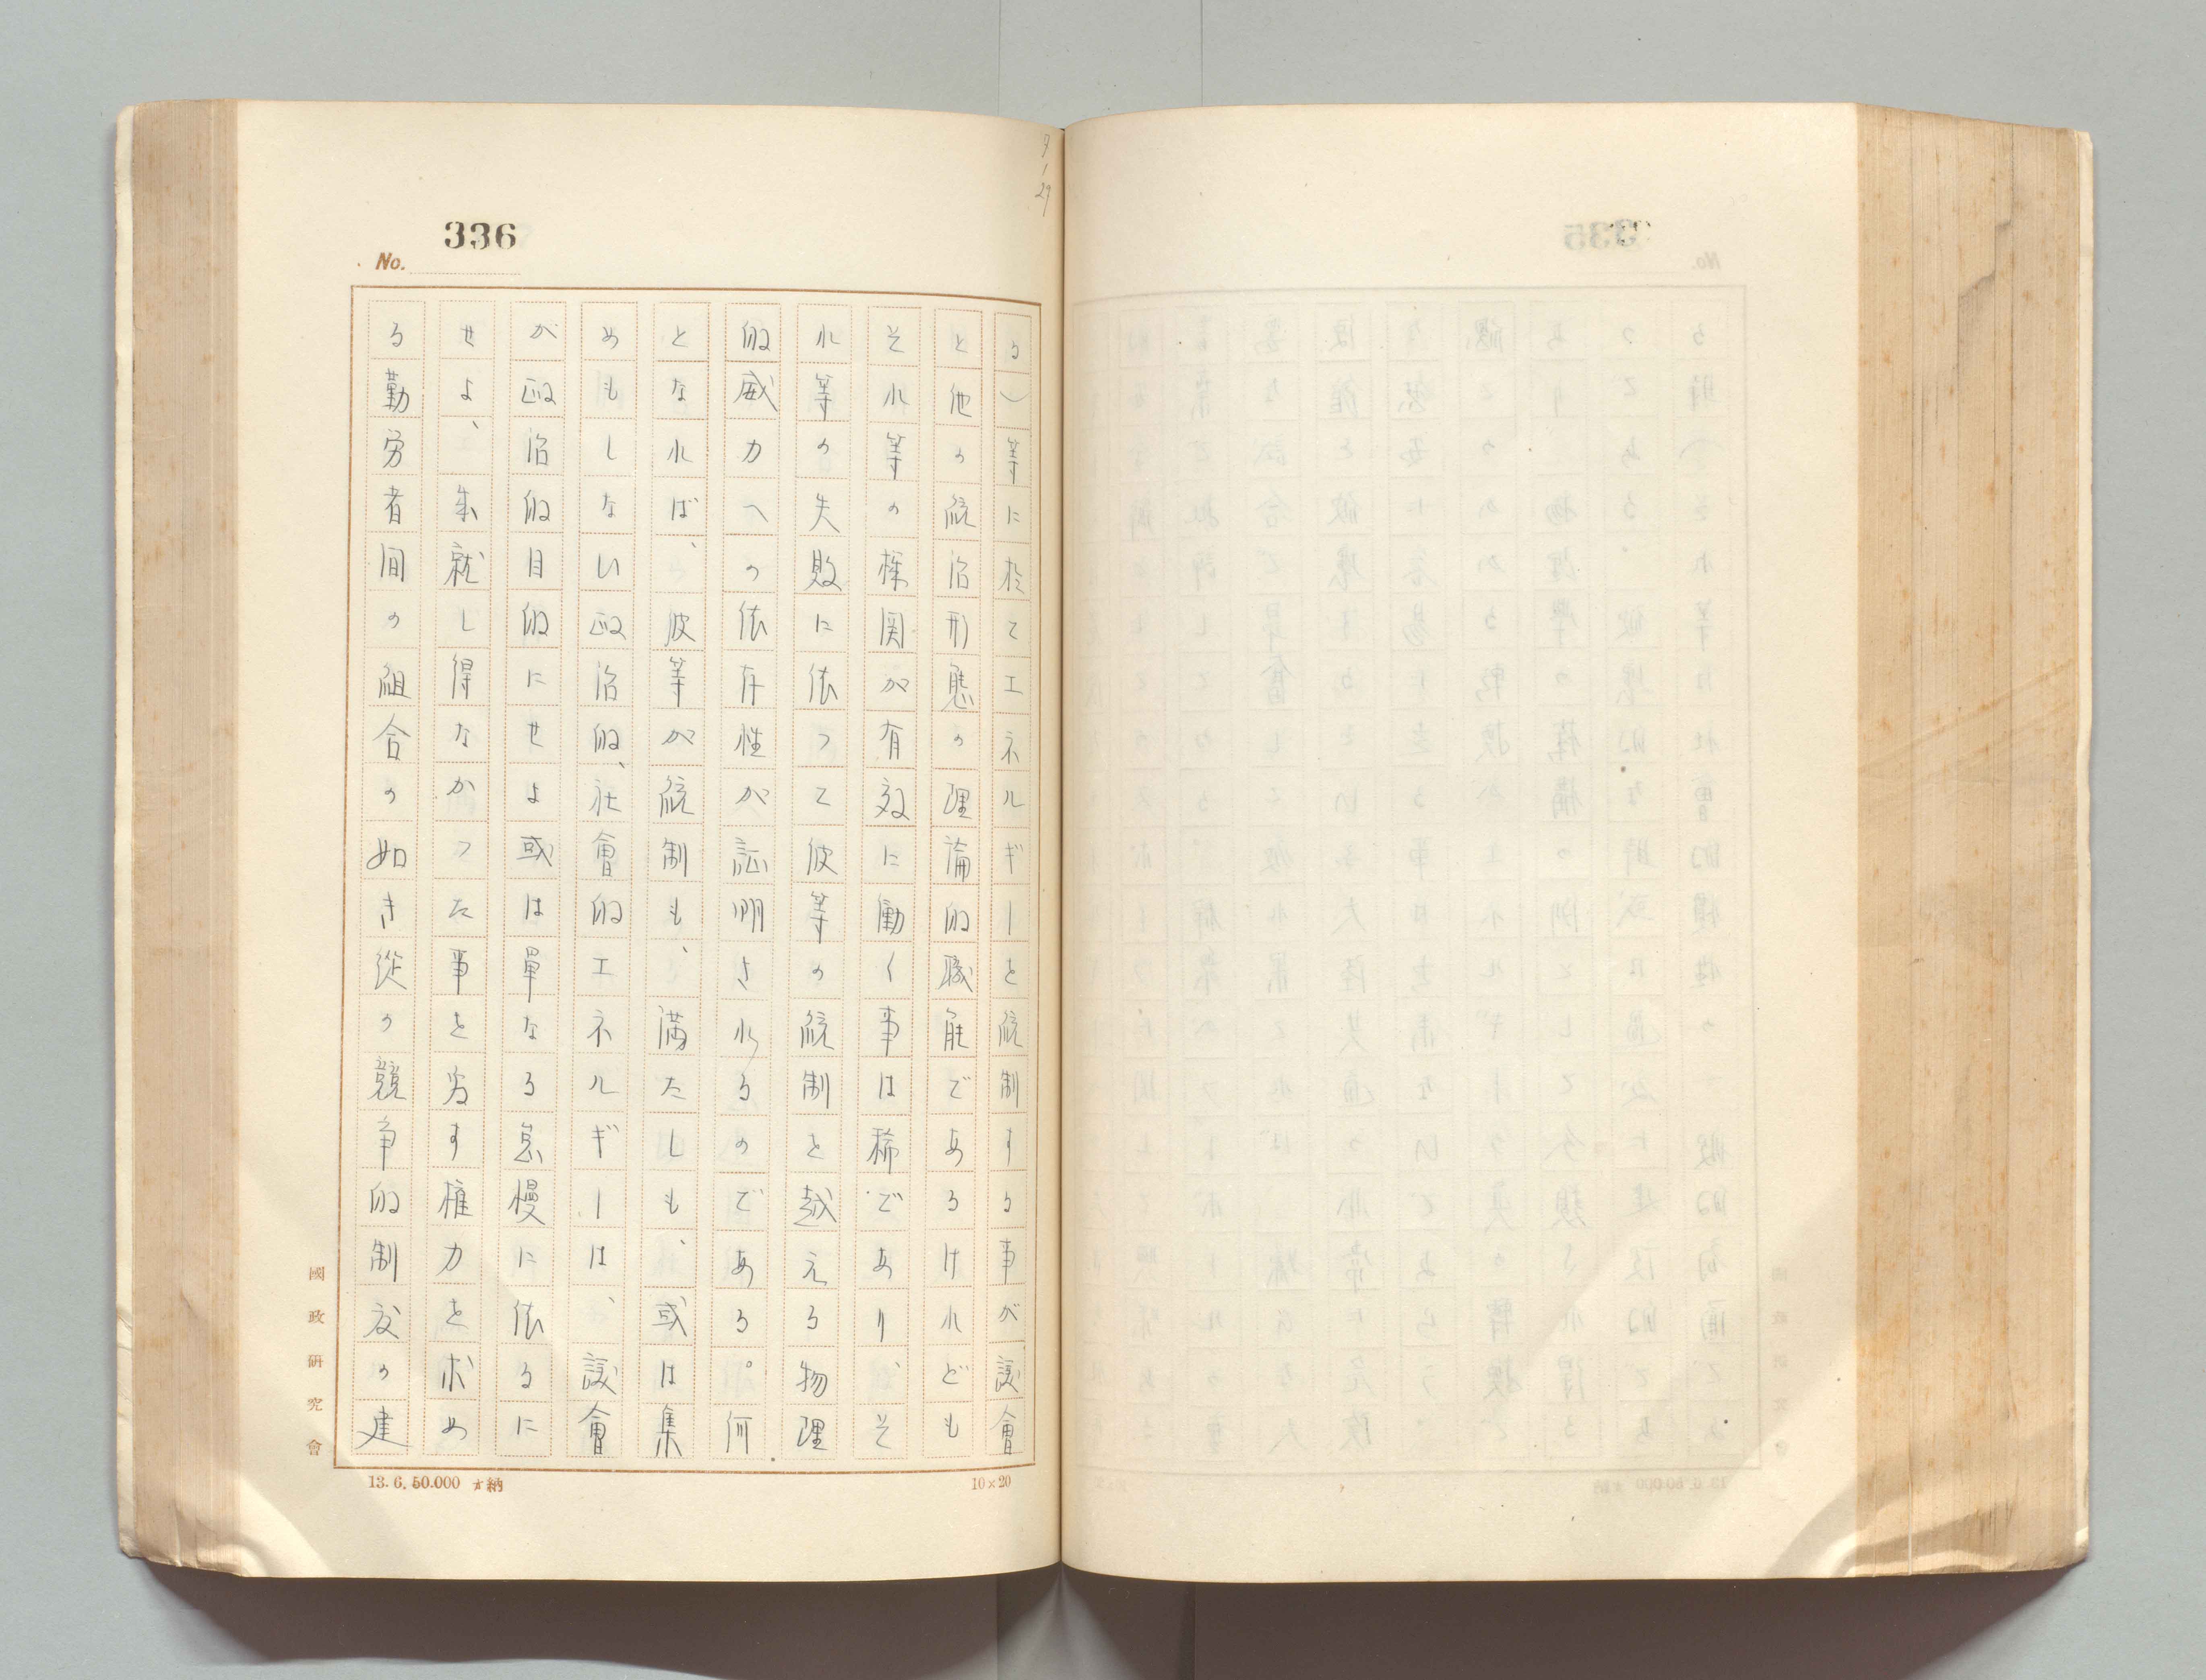 9/29
336
No.
る)等に於てエネルギーを統制する事が議會
と他の統治形態の理論的職能であるけれども
それ等の機関が有效に働く事は稀であり、そ
れ等の失敗に依つて彼等の統制を越える物理
的威力への依存性が証明されるのである。何
となれば、彼等が統制も、満たしも、或は集
めもしない政治的、社會的エネルギーは、議會
が政治的目的にせよ或は單なる怠慢に依るに
せよ、成就し得なかつた事を為す権力を求め
る勤労者間の組合の如き従の競争的制度の建
國政研究會
13. 6. 50.000 納
10×20